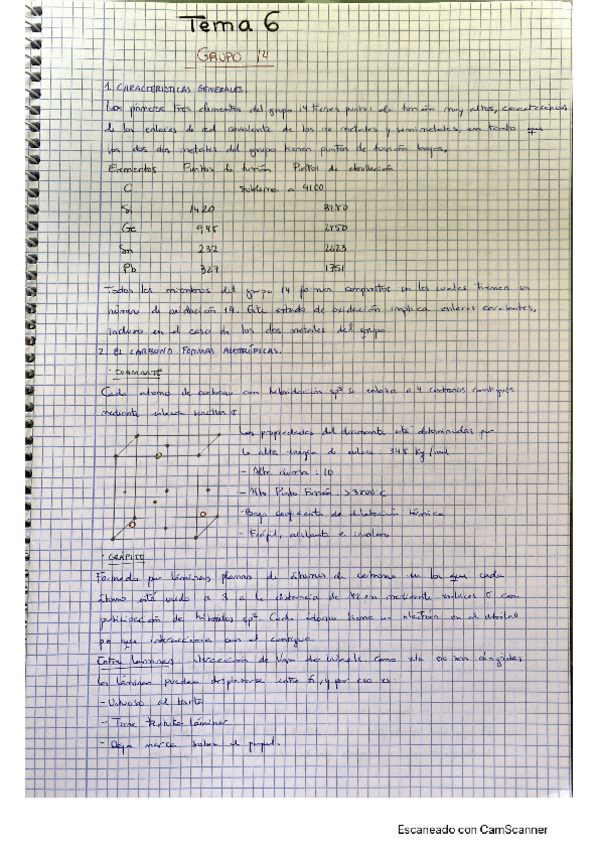 Tema 6
GRUPO 14
1. CARACTERÍSTICAS GENERALES
Los primeros tres elementos del grupo 14 tienen puntos de fusión muy altos, característicos
de los enlaces de red covalente de los no metales y semimetales, en tanto que
los dos metales del grupo tienen puntos de fusión bajos.
Elementos Puntos de fusión Puntos de ebullición
C Sublima a 4100
Si 1420 3280
Ge 945 2850
Sn 232 2623
Pb 327 1751
Todos los miembros del grupo 14 forman compuestos en los cuales tienen un
número de oxidación 14. Este estado de oxidación implica enlaces covalentes,
incluso en el caso de los dos metales del grupo.
2. EL CARBONO. FORMAS ALOTRÓPICAS.
· DIAMANTE
Cada átomo de carbono con hibridación sp³ se enlaza a 4 carbonos contiguos
mediante enlaces sencillos σ.
Las propiedades del diamante está determinadas por
la alta energía de enlace: 345 kg/mol
- Alta dureza: 10
- Alto Punto Fusión: >3000 C
- Bajo coeficiente de dilatación térmica
- Frágil, aislante e incoloro
· GRÁFITO
Formado por láminas planas de átomos de carbono en las que cada
átomo está unido a 3 a la distancia de mediante enlaces σ con
participación de híbridos sp². Cada átomo tiene un electrón en el orbital
que interacciona con el contiguo.
Entre láminas: interacción de Van der Waals como ella no son dirigidas
las láminas pueden desplazarse entre sí, y por eso es:
- Untuoso al tacto
- Tiene textura láminar
- Deja marca sobre el papel.
Escaneado con CamScanner